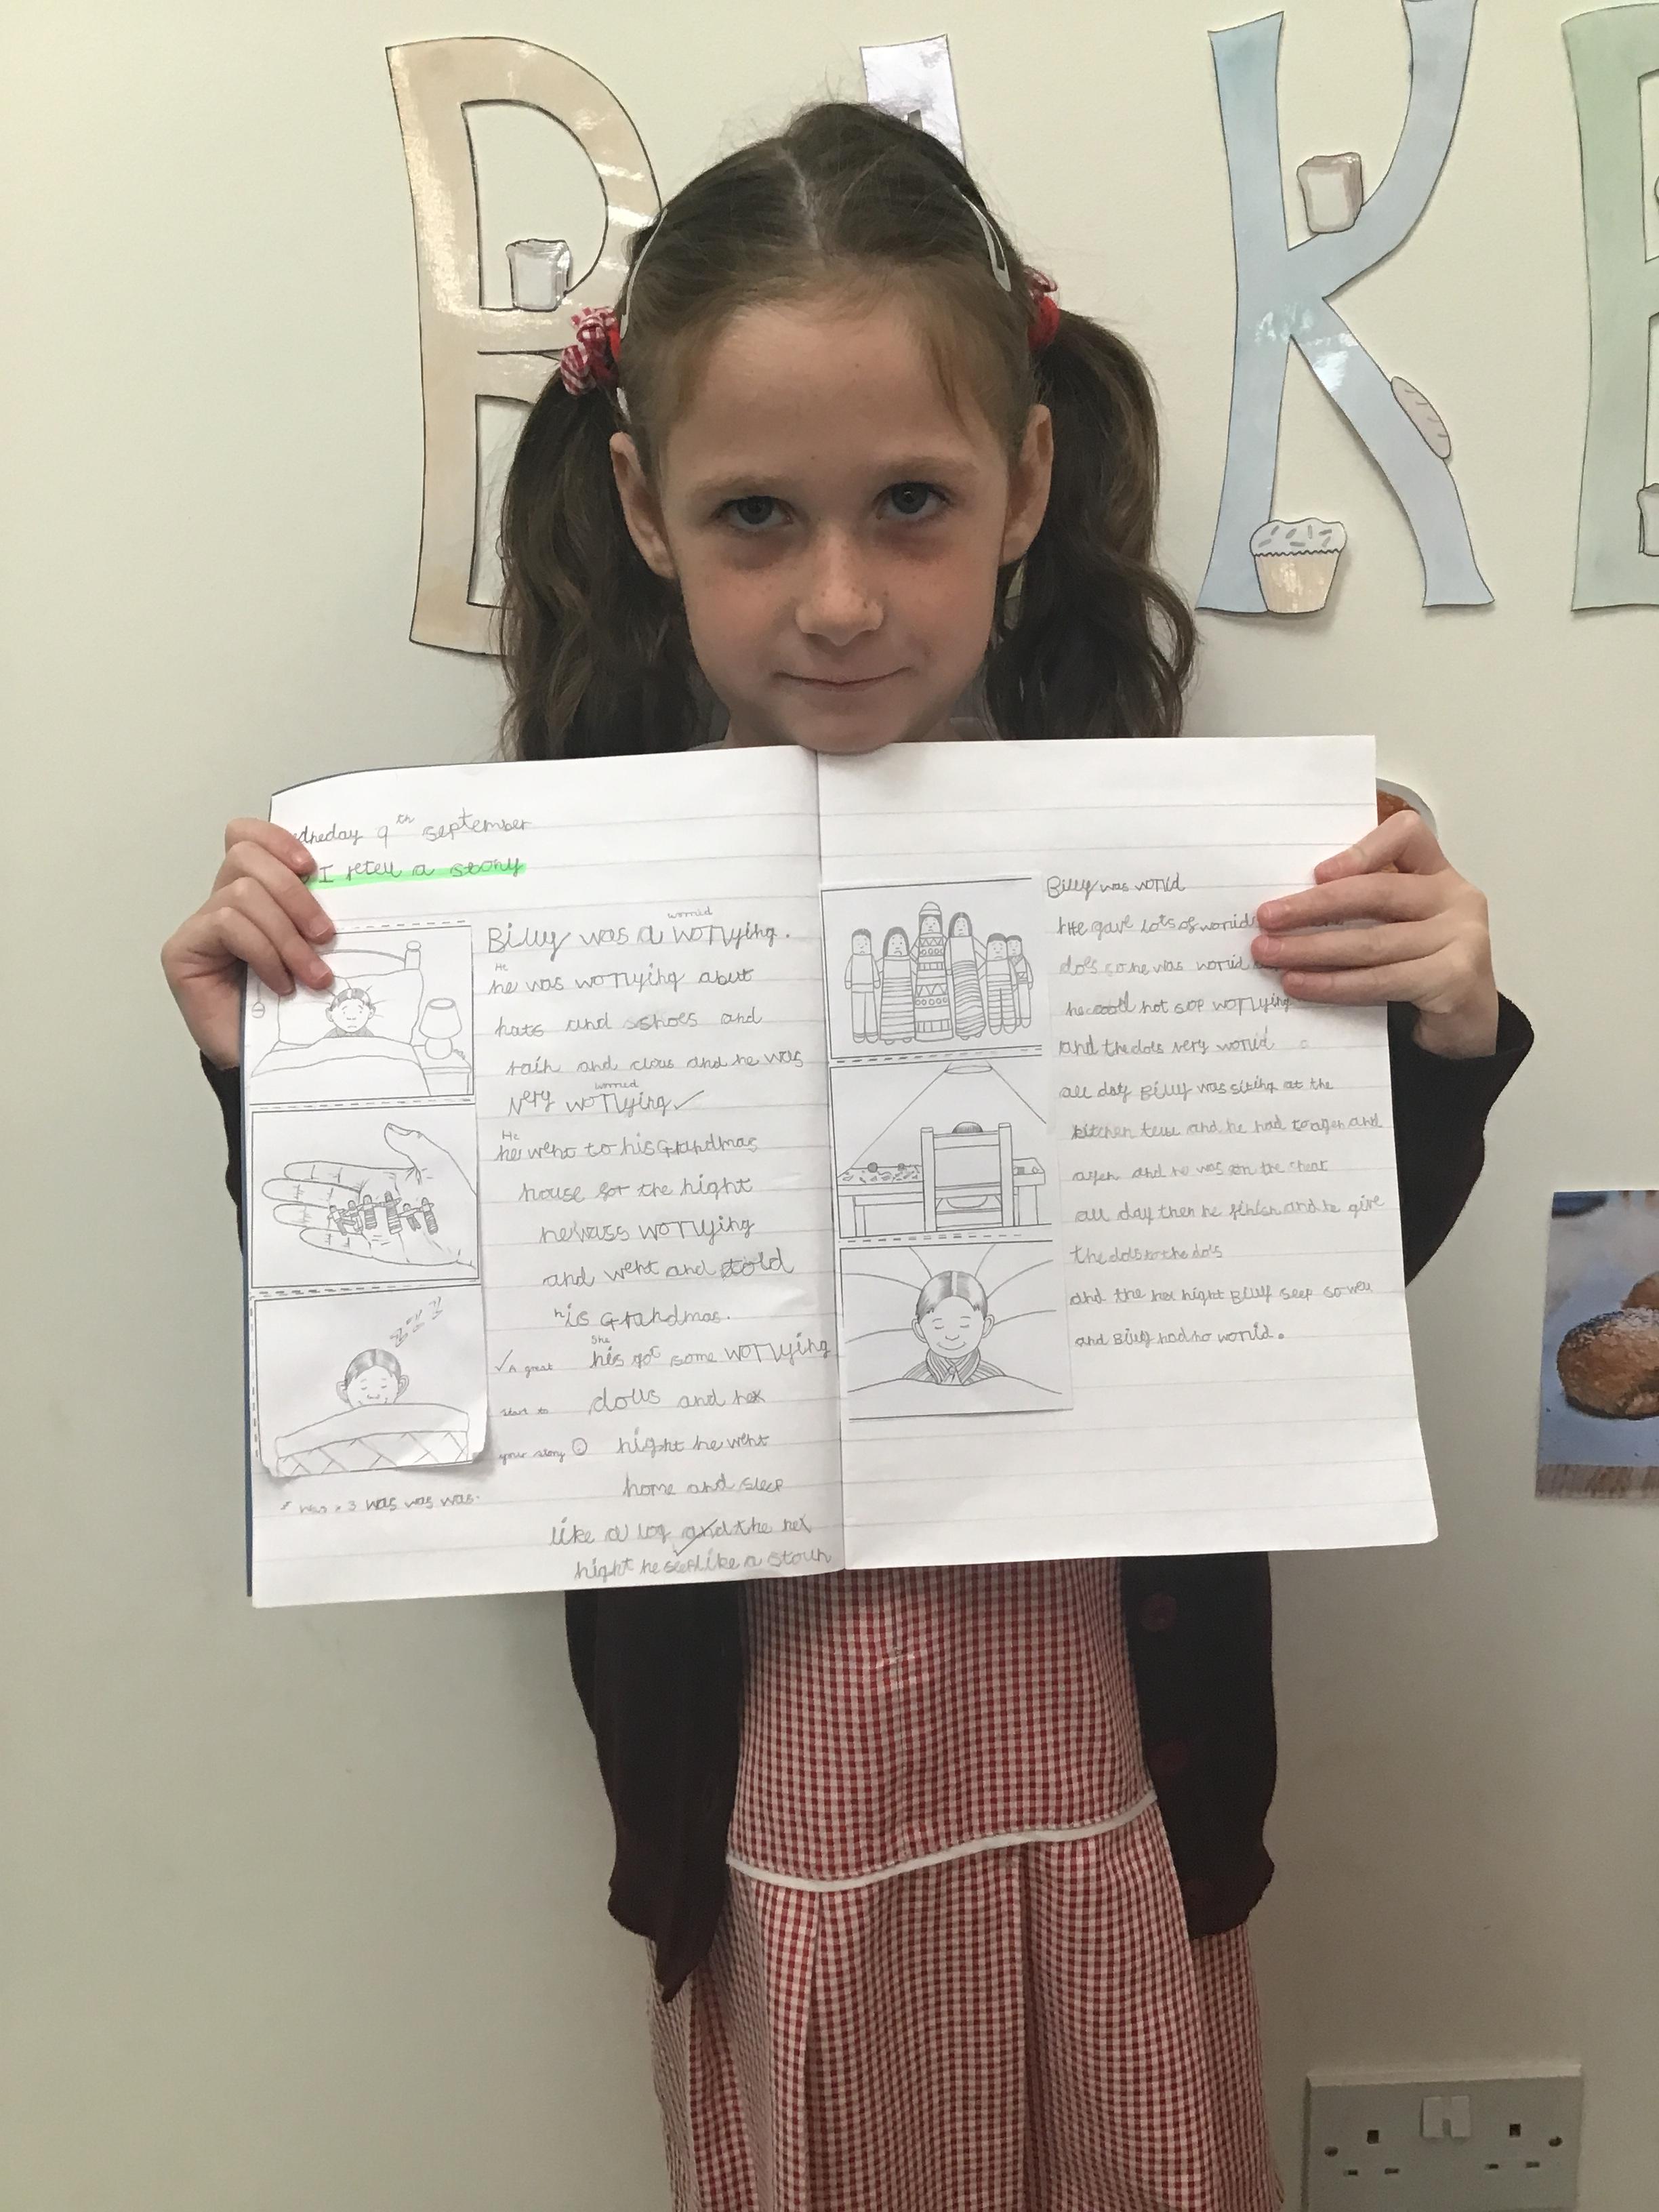 B
K
dneday 9th september
I retell a story
worried
Billy was a worrying.
He
he was worrying abut
hats and shoes and
rain and clous and he was
worried
very worrying ✓
He
he went to his Grandmas
house for the night
he wass worrying
and went and told
his Grandmas.
She
✓ A great his got some worrying
start to dolls and nex
your story ☺ night he went
home and sleep
like a log and the nex
night he sleep like a stoun
was x 3 was was was.
Billy was worrid
He gave lots of worrid
dols so he was worrid
he coodl not sop worrying
and the dols very worrid
all day Billy was siting at the
kitchen and he had to agen and
agen and he was son the
all day then he finish and he give
the dols to the dols
and the nex night Billy seep so well
and Billy had no worrid.